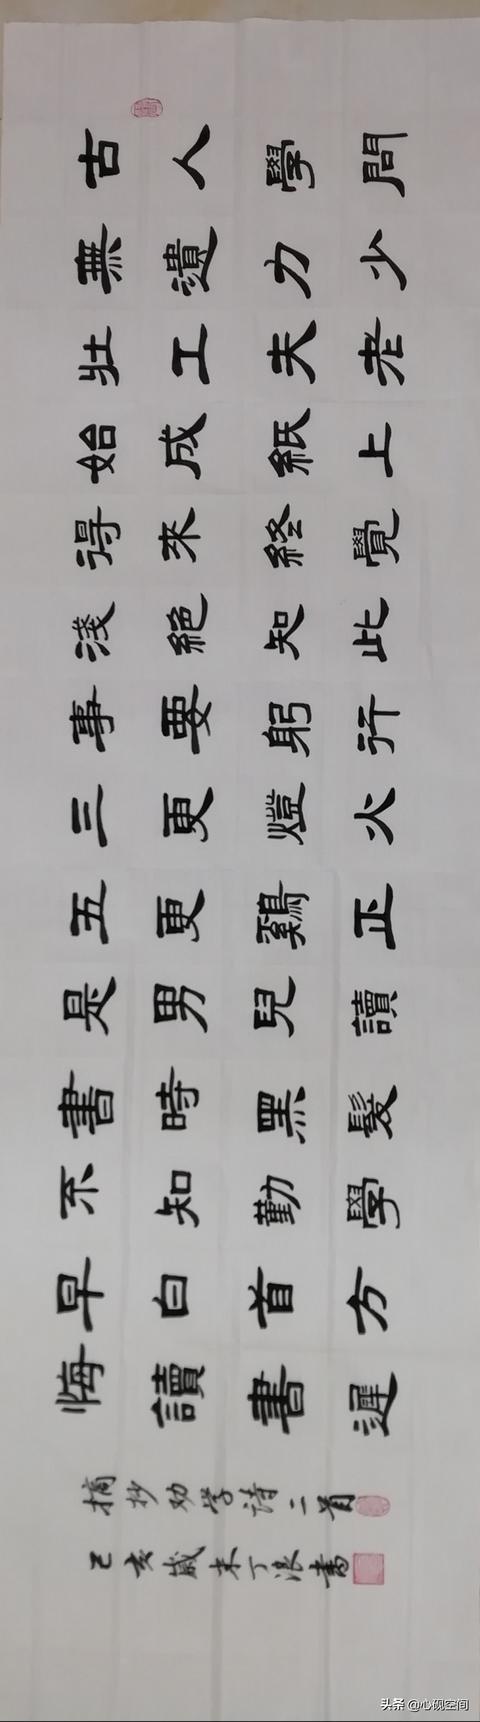 古人學問
無遺力少
壯工夫老
始成紙上
得來終覺
淺絕知此
事要躬行
三更燈火
五更鷄正
是男兒讀
書時黑髮
不知勤學
早白首方
悔讀書遲
摘抄劝学诗二首
己亥歲末丁浪書
头条 @心砚空间